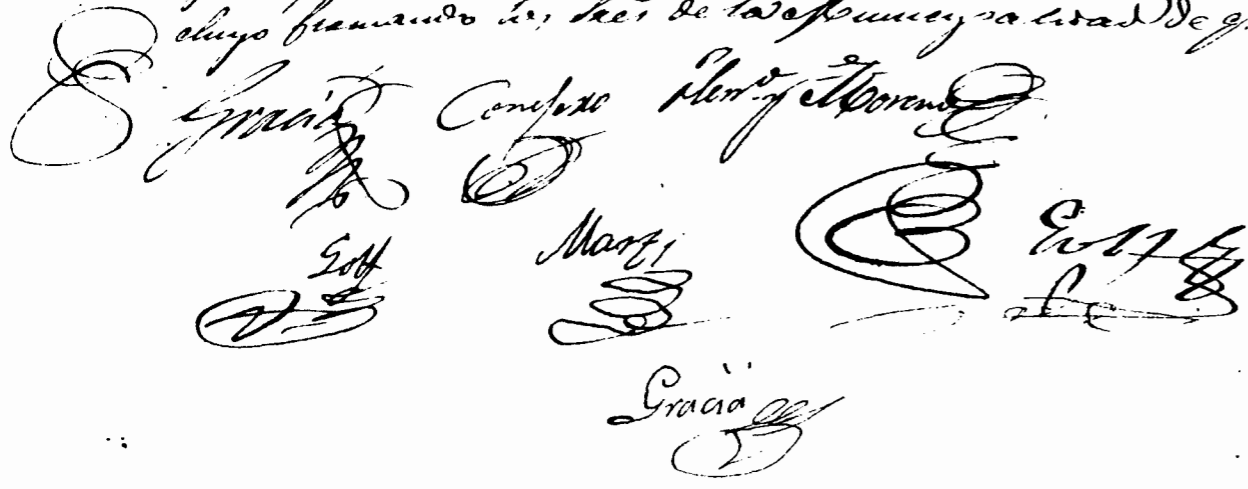 cluyo firmando los Sres de la Municipalidad de q.
Gracia Conejero Hern.z y Moreno
Goff Marti
Gracia